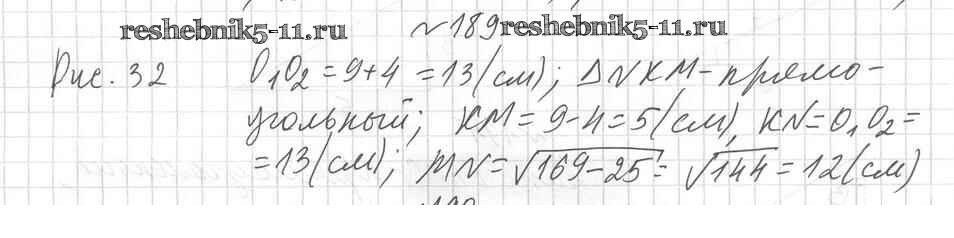 reshebnik5-11.ru №189 reshebnik5-11.ru
Рис. 32 O₁O₂ = 9+4 = 13(см); ΔNKM - прямо-
угольный; KM = 9-4=5(см), KN=O₁O₂=
=13(см); MN = √169-25 = √144 = 12(см)